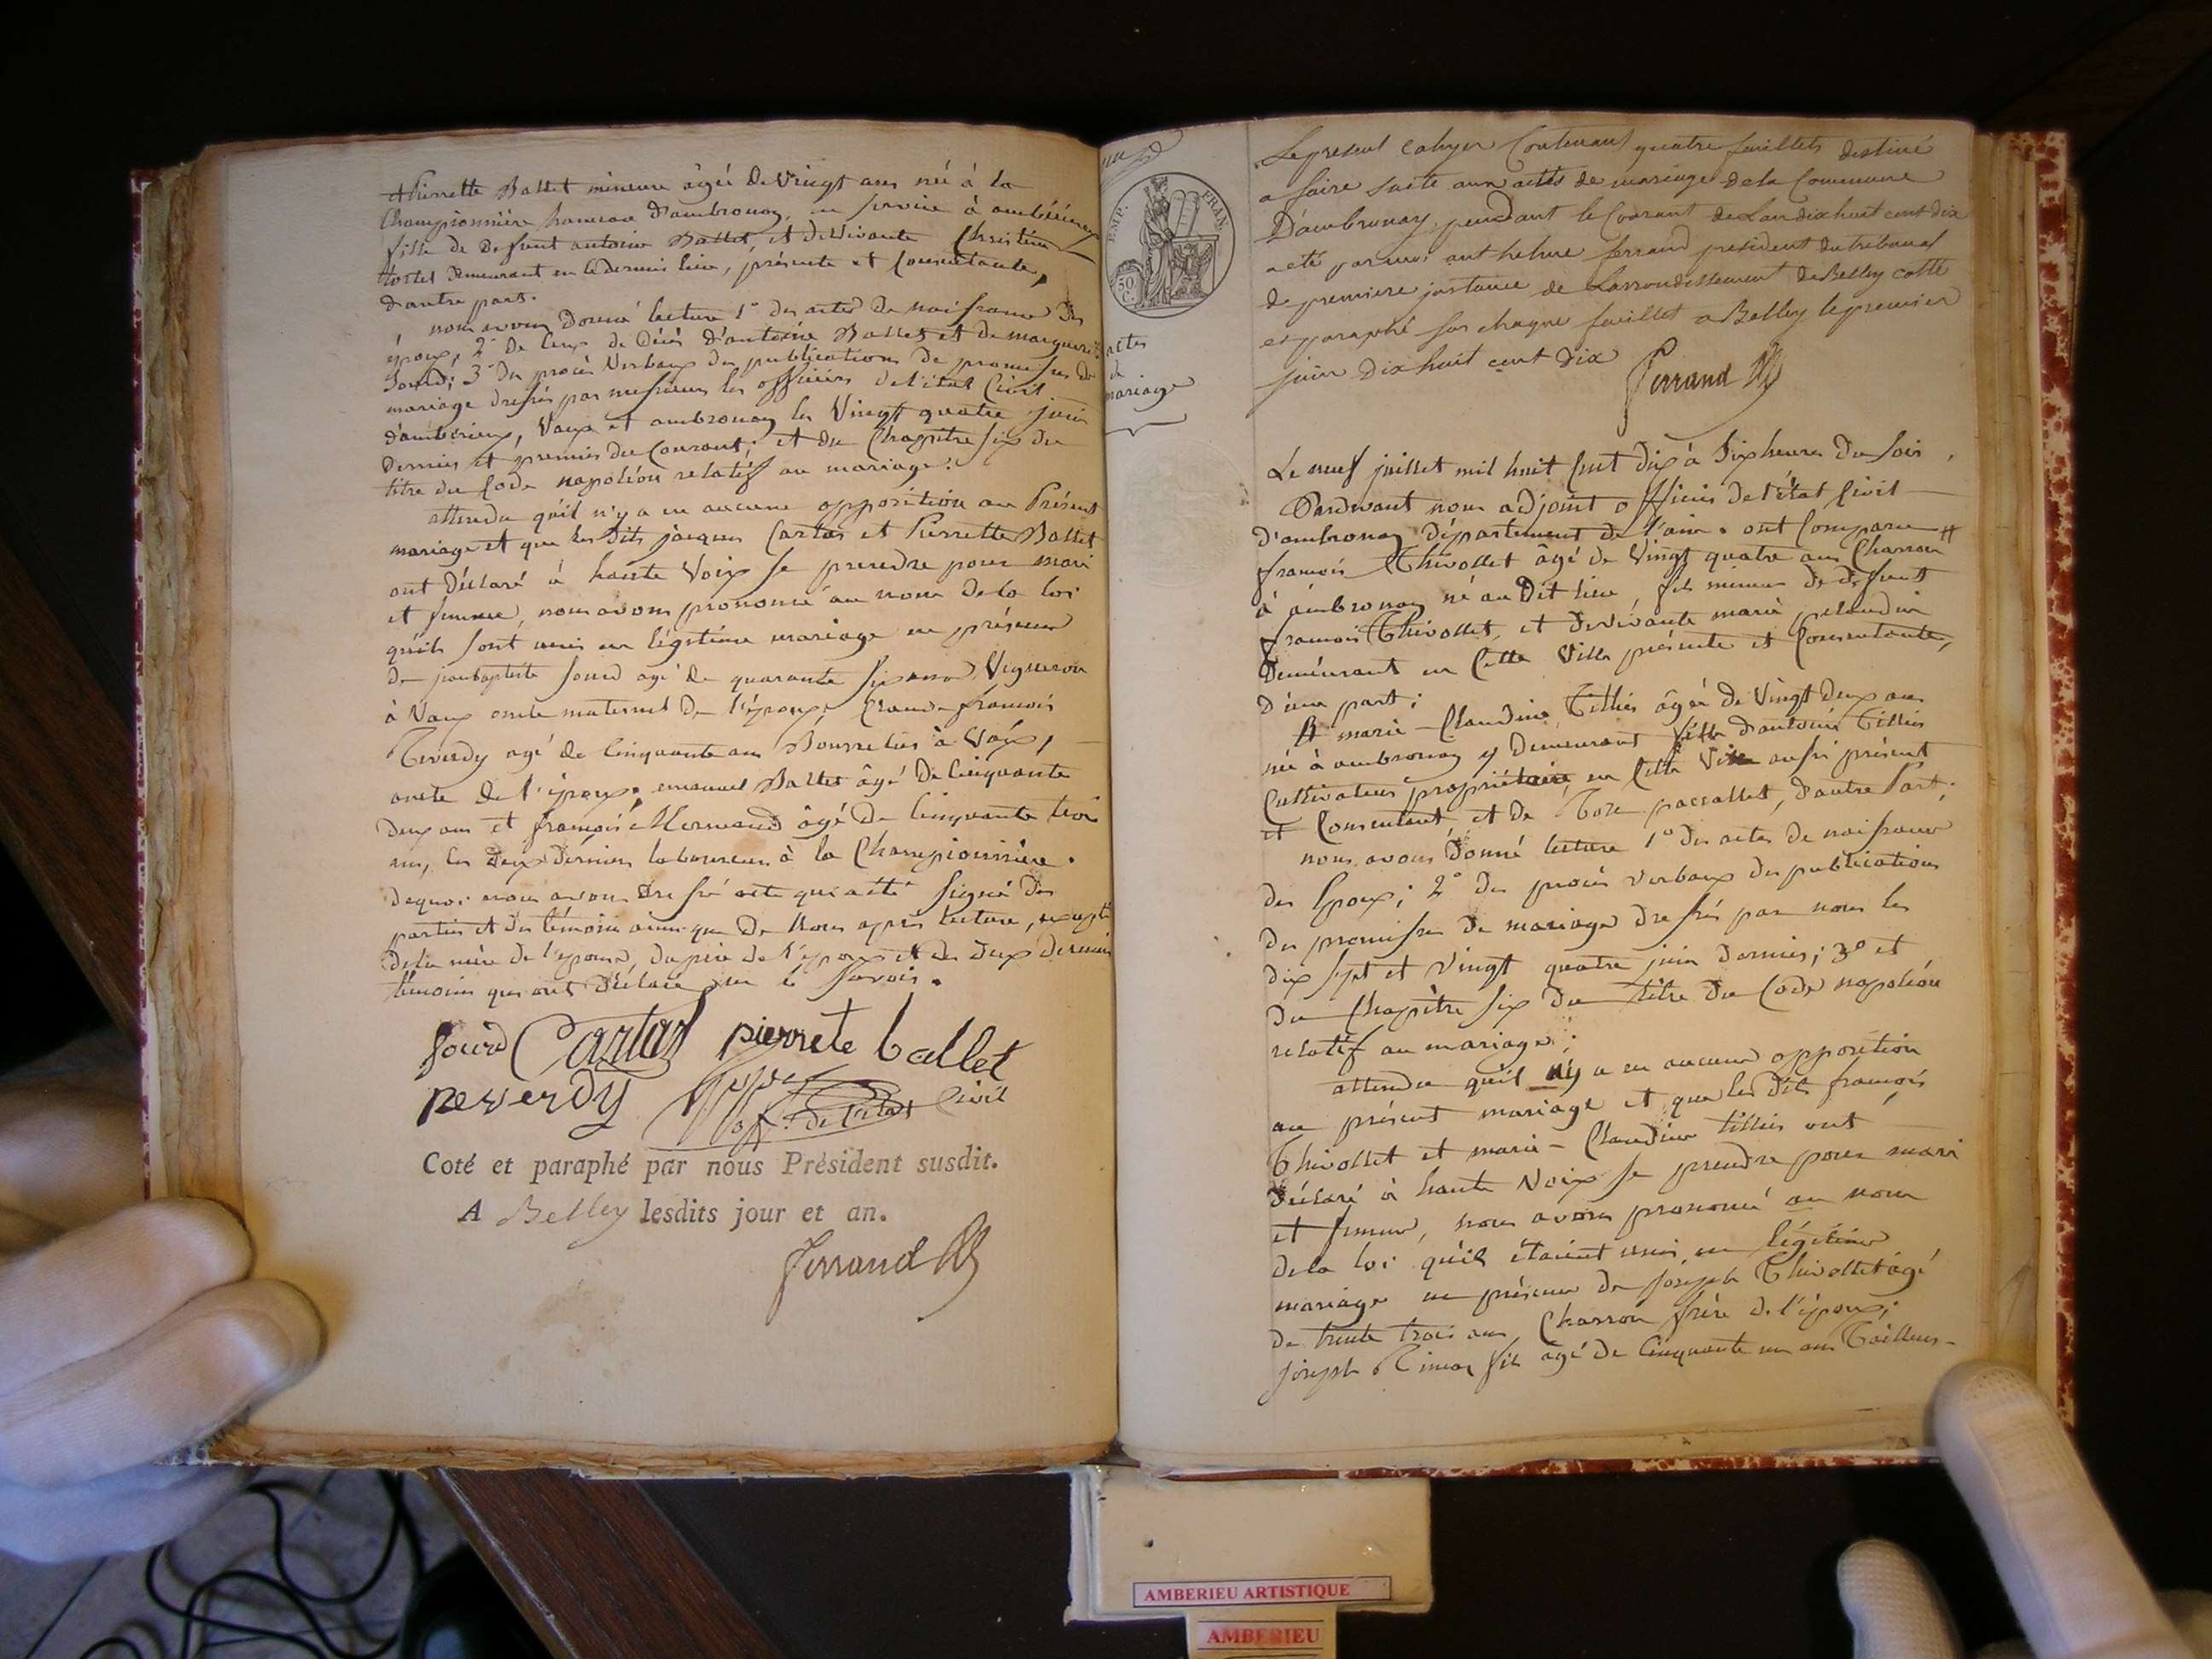 et Pierrette Ballet mineure âgée de Vingt ans née à la
Championnière hameau d'ambronay, en service à ambérieux
fille de defunt antoine Ballet, et de Vivante Christine
demeurant en ce dernier lieu, présente et Consentante,
d'autre part.
nous avons Donné lecture 1° des actes de naissance des
époux, 2° de ceux de Décès d'antoine Ballet et de marguerite
Sourd; 3° des procès Verbaux des publications de promesses de
mariage dressés par messieurs les officiers de l'état Civil
d'ambérieux, Vaux et ambronay les Vingt quatre juin
dernier et premier du Courant; et du Chapitre six du
titre du Code napoléon relatif au mariage.
attendu qu'il n'y a eu aucune opposition au Présent
mariage et que les dits jacques Cartas et Pierrette Ballet
ont déclaré à haute Voix se prendre pour mari
et femme, nous avons prononcé au nom de la loi
qu'ils sont unis en légitime mariage en présence
de jean baptiste Sourd agé de quarante six ans Vigneron
à Vaux oncle maternel de l'époux; Claude françois
Reverdy agé de Cinquante ans Bourrelier à Vaux,
oncle de l'époux; emanuel Ballet âgé de Cinquante
deux ans et françois Mermand âgé de Cinquante trois
ans, les deux derniers laboureurs à la Championnière.
de quoi nous avons dressé acte qui a été signé des
parties et des témoins ainsi que de Nous après lecture, excepté
de la mère de l'épouse, du père de l'époux et des deux derniers
témoins qui ont déclaré ne le savoir.
Sourd Cartas pierrete ballet
reverdy
off. de l'état Civil
Coté et paraphé par nous Président susdit.
A Belley lesdits jour et an.
Ferrand
EMP. FRAN.
50 C.
actes
de
mariage
Le present cahyer Contenant quatre feuillets destiné
a faire suite aux actes de mariage de la Commune
D'ambronay, pendant le Courant de Lan dix huit cent dix
a eté par moi anthelme ferrand president du tribunal
de premiere instance de Larrondissement de Belley cotté
et paraphé sur chaque feuillet a Belley le premier
juin dix huit cent dix Ferrand
Le neuf juillet mil huit Cent dix à Six heures du soir,
Pardevant nous adjoint officier de l'état Civil
d'ambronay Département de l'ain. ont Comparu
françois Thivollet âgé de Vingt quatre ans Charron
à ambronay né au Dit lieu, fils mineur de defunt
françois Thivollet, et de vivante marie
demeurant en Cette Ville présente et Consentante,
d'une part;
Et marie-Claudine Tillier âgée de Vingt deux ans
née à ambronay y demeurant fille d'antoine Tillier
Cultivateur propriétaire, en Cette Ville aussi présent
et Consentant, et de, d'autre Part;
nous avons Donné lecture 1° des actes de naissance
des Epoux; 2° des procès verbaux des publications
des promesses de mariage dressés par nous les
dix sept et Vingt quatre juin dernier; 3° et
du Chapitre six du titre du Code napoléon
relatif au mariage;
attendu qu'il n'y a eu aucune opposition
au présent mariage et que les dits françois
Thivollet et marie-Claudine tillier ont
déclaré à haute Voix se prendre pour mari
et femme, nous avons prononcé au nom
de la loi qu'ils étaient unis en légitime
mariage en présence de joseph Thivollet âgé
de trente trois ans, Charron frère de l'époux;
joseph fils âgé de Cinquante un ans Tailleur-
AMBERIEU ARTISTIQUE
AMBERIEU